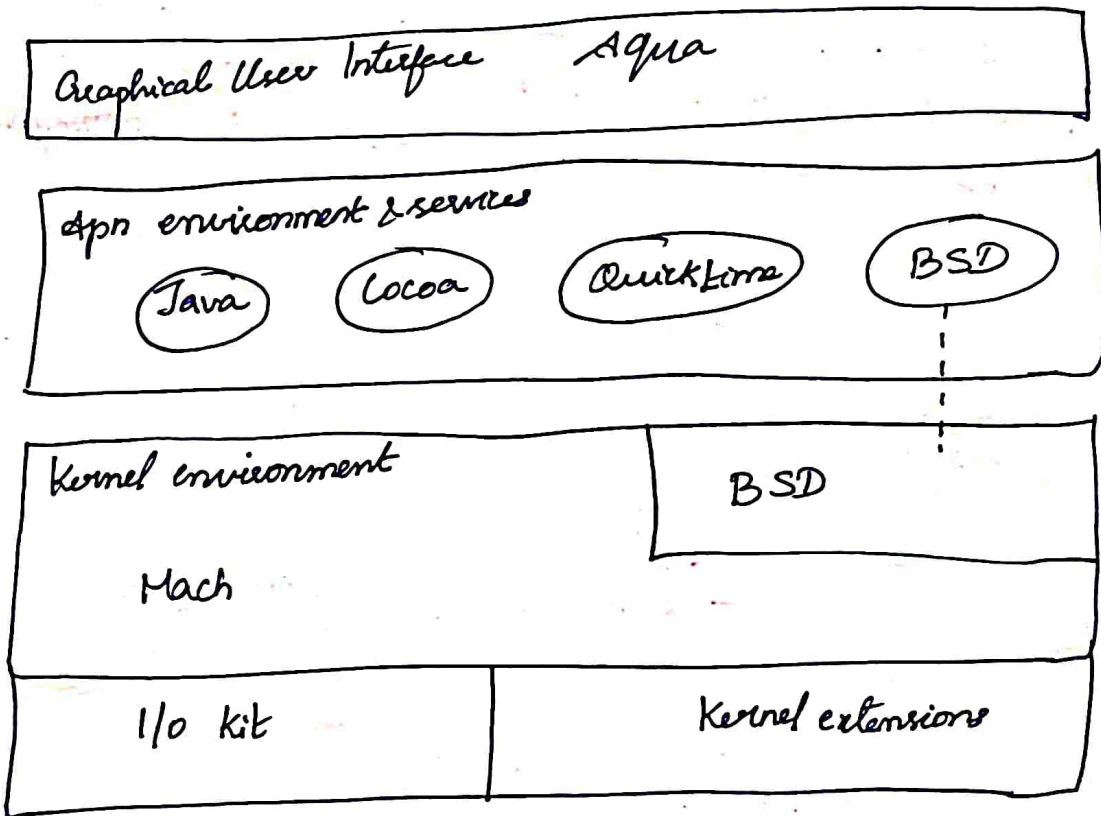 Graphical User Interface Aqua
Apn environment & services
Java Cocoa Quicktime BSD
Kernel environment
BSD
Mach
I/O kit Kernel extensions